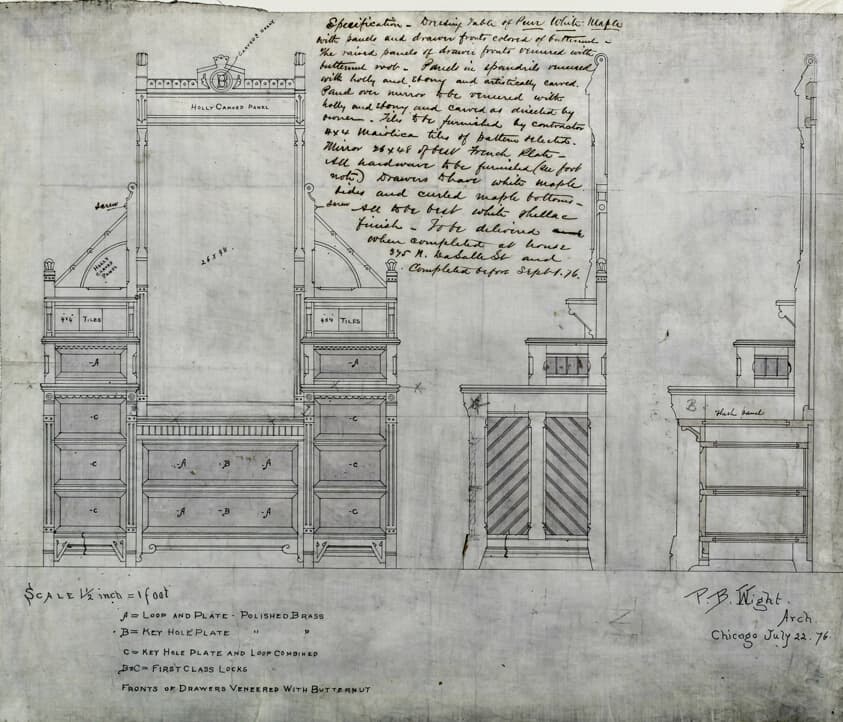 Specification – Dressing Table of Pure White Maple
with panels and drawer fronts colored of butternut –
The raised panels of drawer fronts veneered with
butternut root – Panels in spandrils veneered
with holly and Ebony and artistically carved.
Panel over mirror to be veneered with
holly and Ebony and carved as directed by
owner – Tiles to be furnished by contractor
4x4 Maiolica tiles of pattern selected.
Mirror 26x48 of best French Plate –
All hardware to be furnished (see foot
note) Drawers to have white maple
sides and curled maple bottoms –
All to be best white shellac
finish – To be delivered
when completed at house
375 N. LaSalle St and
Completed before Sept 1. 76.
B
HOLLY CARVED PANEL
Screw
Screw
HOLLY CARVED PANEL
26 x 48.
4x4 TILES
4x4 TILES
-A
-A
-C
-C
-C
-A -B A
-C
-C
-A -B -A
-C
B
Flush panel
SCALE 1½ inch = 1 foot
A = LOOP AND PLATE - POLISHED BRASS
B = KEY HOLE PLATE " "
C = KEY HOLE PLATE AND LOOP COMBINED
B&C = FIRST CLASS LOCKS
FRONTS OF DRAWERS VENEERED WITH BUTTERNUT
P. B. Wight.
Arch.
Chicago July 22. 76.